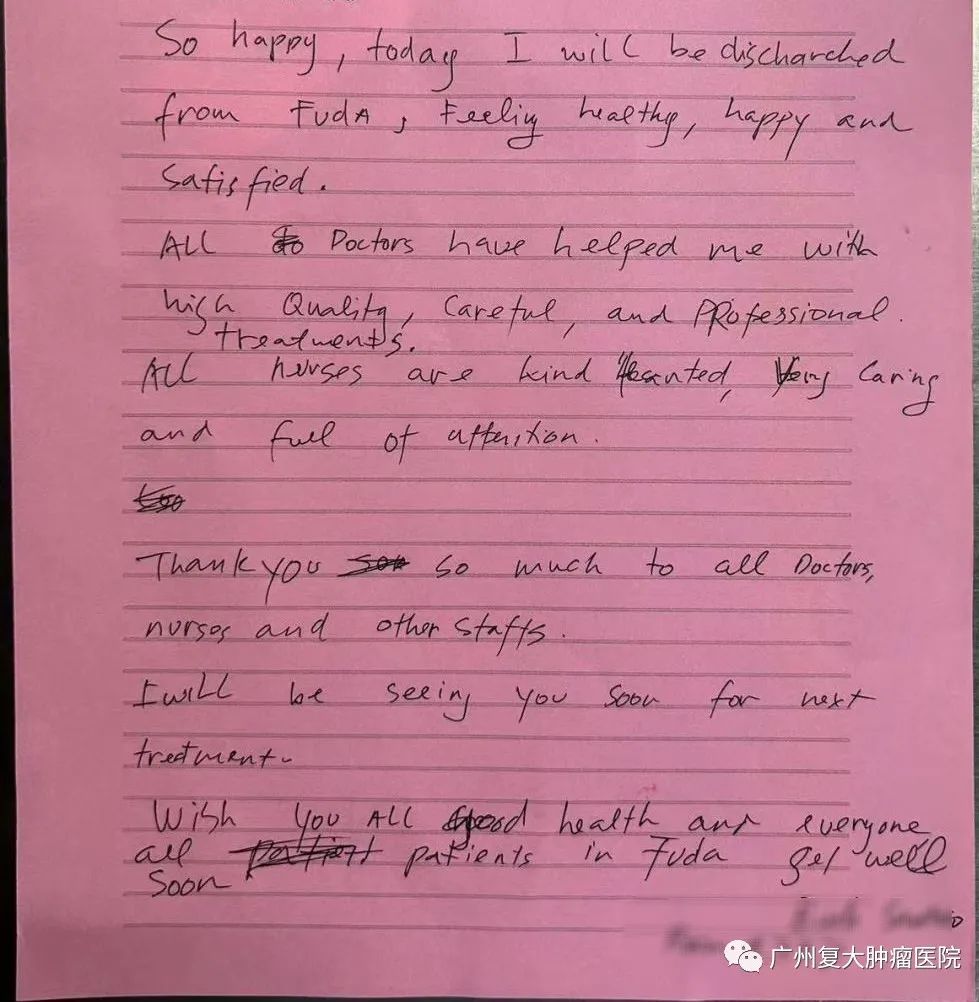 So happy, today I will be discharched
from FudA, Feeling healthy, happy and
Satisfied.
ALL Doctors have helped me with
high Quality, Careful, and PROfessional.
treatments.
ALL nurses are kind hearted, Very Caring
and full of attention.
Thank you so much to all Doctors,
nurses and other Staffs.
I will be seeing you soon for next
treatment.
Wish you ALL good health and everyone
all patients in Fuda get well
soon
广州复大肿瘤医院